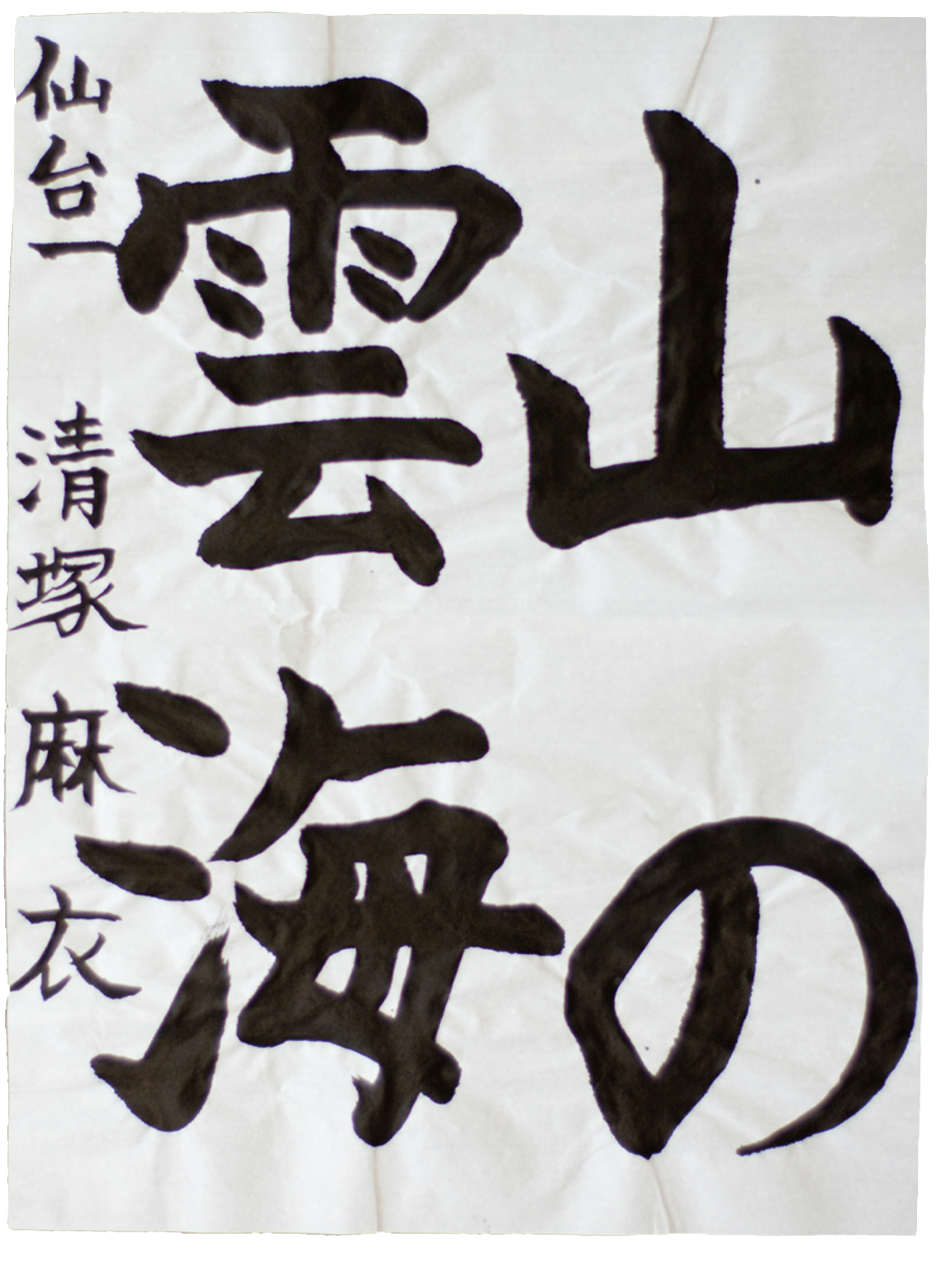 山の
雲海
仙台一 清塚 麻衣